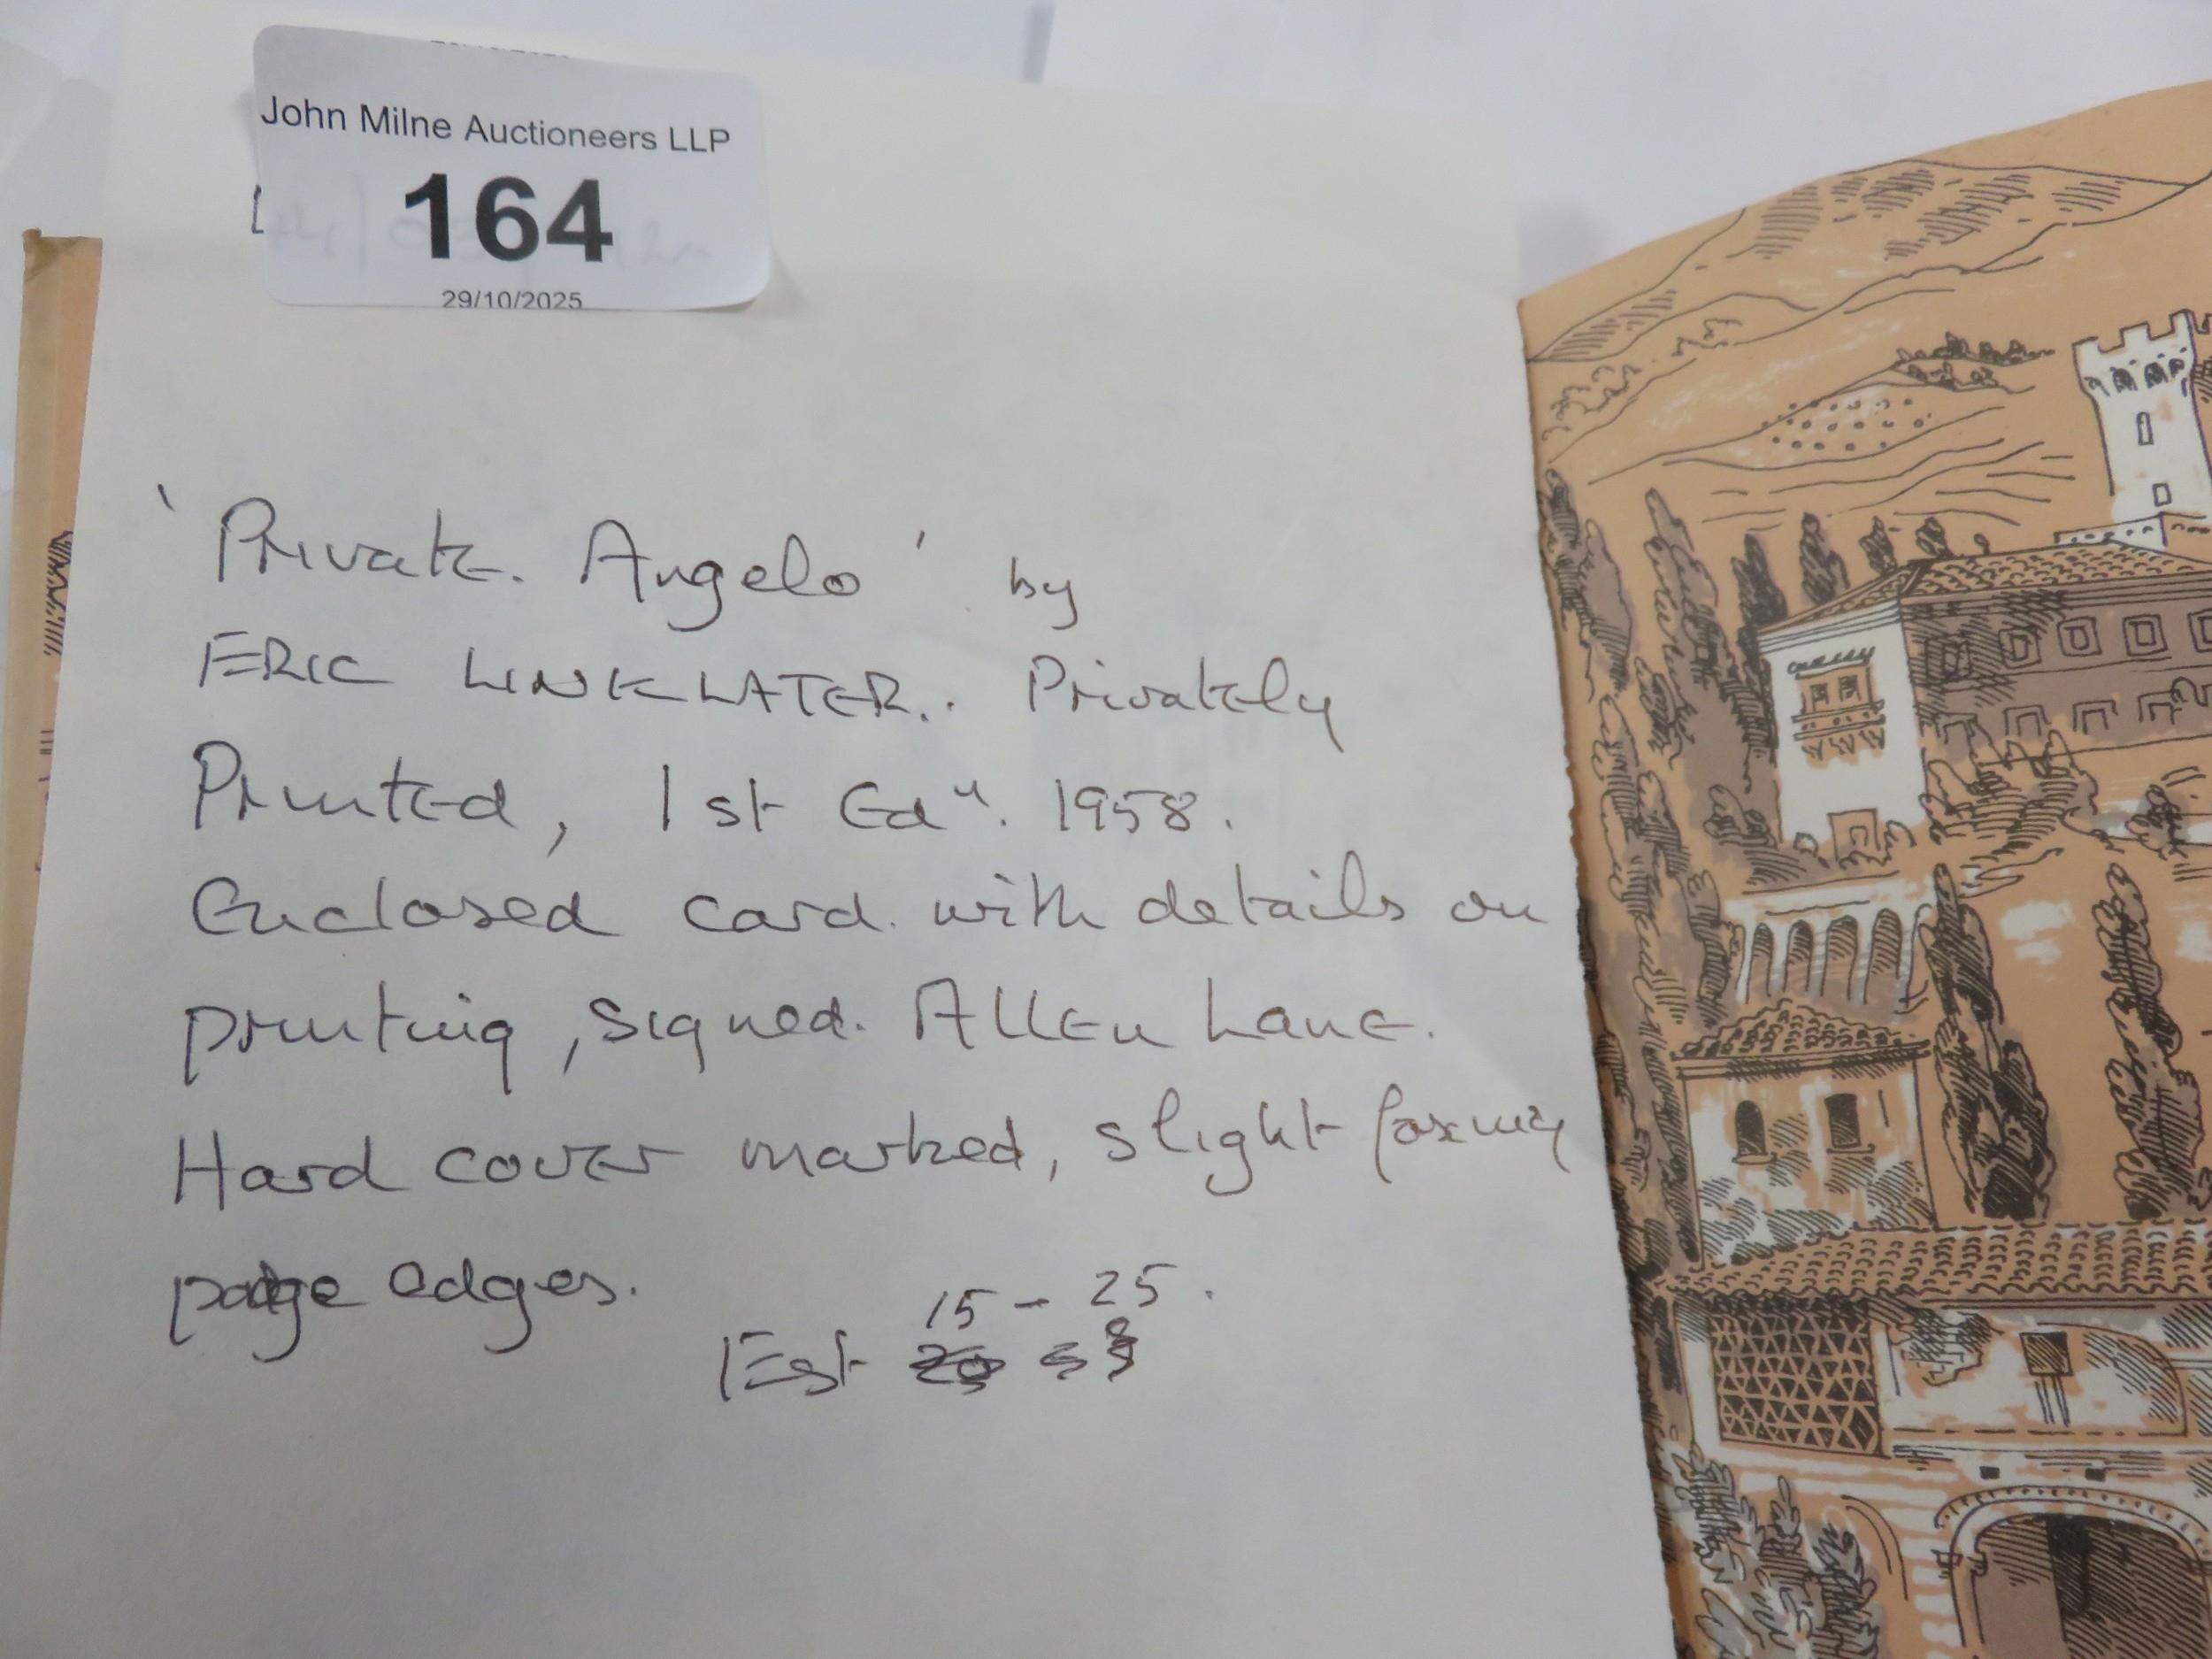 John Milne Auctioneers LLP
164
29/10/2025
'Private. Angelo' by
ERIC LINKLATER.. Privately
Printed, 1st Edn. 1958.
Enclosed card. with details on
printing, signed. Allen Lane.
Hard cover marked, slight foxing
page edges.
15 - 25.
Est